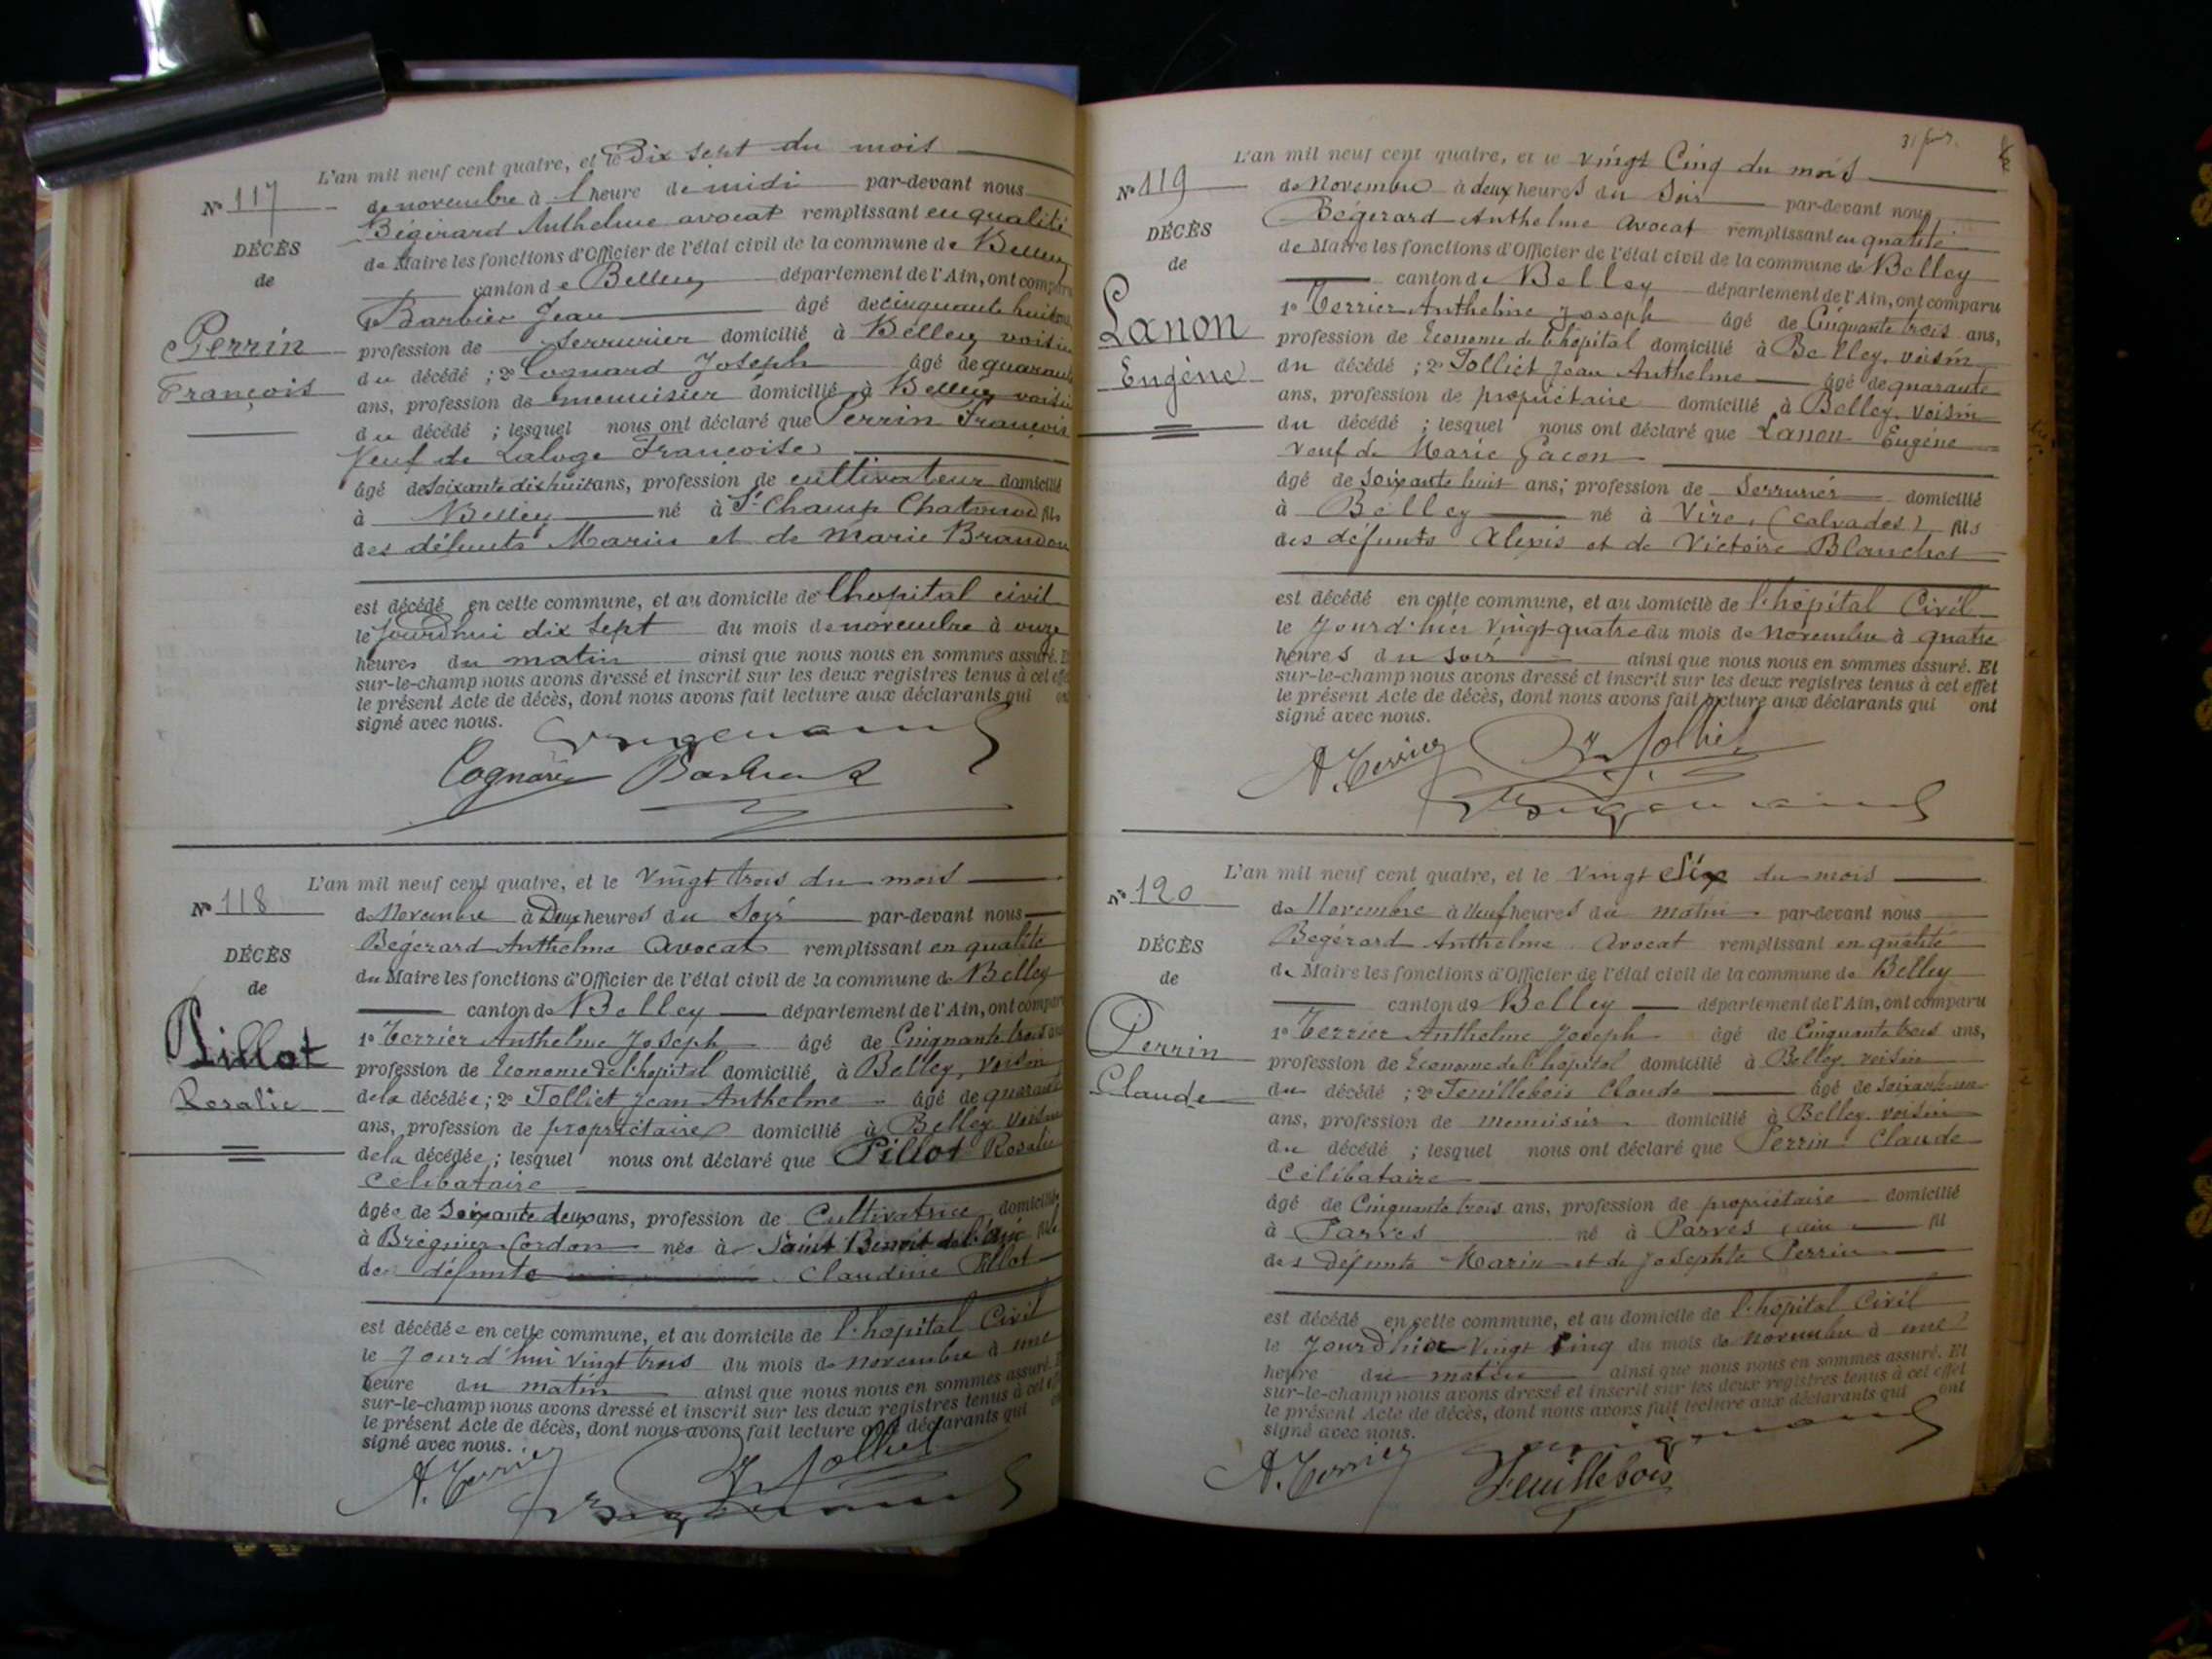 L'an mil neuf cent quatre, et le Dix sept du mois
Nº 117
de novembre à l heure de midi par-devant nous
Bégérard Anthelme avocat remplissant en qualité
DÉCÈS
de Maire les fonctions d'Officier de l'état civil de la commune de Belley
de
canton de Belley département de l'Ain, ont comparu
Barbier Jean âgé de cinquante huit ans
Perrin
profession de serrurier domicilié à Belley voisin
du décédé ; 2º Cognard Joseph âgé de quarante
François
ans, profession de menuisier domicilié à Belley voisin
du décédé ; lesquel nous ont déclaré que Perrin François
Veuf de Laloge Françoise
âgé de soixante dix huit ans, profession de cultivateur domicilié
à Belley né à St Champ Chatonod fils
des défunts Marin et de Marie
est décédé en cette commune, et au domicile de l'hopital civil
le jourd'hui dix sept du mois de novembre à onze
heures du matin ainsi que nous nous en sommes assuré. Et
sur-le-champ nous avons dressé et inscrit sur les deux registres tenus à cet effet
le présent Acte de décès, dont nous avons fait lecture aux déclarants qui ont
signé avec nous.
Cognard Barbier
L'an mil neuf cent quatre, et le Vingt trois du mois
Nº 118
de Novembre à Deux heures du Soir par-devant nous
Bégérard Anthelme Avocat remplissant en qualité
DÉCÈS
du Maire les fonctions d'Officier de l'état civil de la commune de Belley
de
canton de Belley département de l'Ain, ont comparu
1º Terrier Anthelme Joseph âgé de Cinquante trois ans
Pillot
profession de Econome de l'hopital domicilié à Belley, voisin
Rosalie
de la décédée ; 2º Tolliet Jean Anthelme âgé de quarante
ans, profession de propriétaire domicilié à Belley voisin
de la décédée ; lesquel nous ont déclaré que Pillot Rosalie
Célibataire
âgée de Soixante deux ans, profession de Cultivatrice domicilié
à Brégnier Cordon née à Saint Benoit de l'ain fille
de défunte Claudine Pillot
est décédée en cette commune, et au domicile de l'hopital Civil
le Jourd'hui vingt trois du mois de novembre à une
heure du matin ainsi que nous nous en sommes assuré. Et
sur-le-champ nous avons dressé et inscrit sur les deux registres tenus à cet effet
le présent Acte de décès, dont nous avons fait lecture aux déclarants qui
signé avec nous.
A. Terrier Tolliet
L'an mil neuf cent quatre, et le vingt Cinq du mois
Nº 119
de Novembre à deux heures du Soir par-devant nous
Bégérard Anthelme Avocat remplissant en qualité
DÉCÈS
de Maire les fonctions d'Officier de l'état civil de la commune de Belley
de
canton de Belley département de l'Ain, ont comparu
1º Terrier Anthelme Joseph âgé de Cinquante trois ans,
Lanon
profession de Econome de l'hopital domicilié à Belley, voisin
Eugène
du décédé ; 2º Tolliet Jean Anthelme âgé de quarante
ans, profession de propriétaire domicilié à Belley, voisin
du décédé ; lesquel nous ont déclaré que Lanon Eugène
Veuf de Marie Gacon
âgé de Soixante huit ans, profession de Serrurier domicilié
à Belley né à Vire, (Calvados) fils
des défunts Alexis et de Victoire Blanchot
est décédé en cette commune, et au domicile de l'hôpital Civil
le Jourd'hier Vingt-quatre du mois de novembre à quatre
heures du soir ainsi que nous nous en sommes assuré. Et
sur-le-champ nous avons dressé et inscrit sur les deux registres tenus à cet effet
le présent Acte de décès, dont nous avons fait lecture aux déclarants qui ont
signé avec nous.
A. Terrier Tolliet
L'an mil neuf cent quatre, et le Vingt Six du mois
Nº 120
de Novembre à Neuf heures du matin par-devant nous
Bégérard Anthelme Avocat remplissant en qualité
DÉCÈS
de Maire les fonctions d'Officier de l'état civil de la commune de Belley
de
canton de Belley département de l'Ain, ont comparu
1º Terrier Anthelme Joseph âgé de Cinquante trois ans,
Perrin
profession de Econome de l'hopital domicilié à Belley, voisin
Claude
du décédé ; 2º Feuillebois Claude âgé de soixante un
ans, profession de menuisier domicilié à Belley, voisin
du décédé ; lesquel nous ont déclaré que Perrin Claude
Célibataire
âgé de Cinquante trois ans, profession de propriétaire domicilié
à Parves né à Parves (ain fil
des Défunts Marin et de Josephte Perrin
est décédé en cette commune, et au domicile de l'hopital Civil
le Jourd'hier Vingt Cinq du mois de novembre à une
heure du matin ainsi que nous nous en sommes assuré. Et
sur-le-champ nous avons dressé et inscrit sur les deux registres tenus à cet effet
le présent Acte de décès, dont nous avons fait lecture aux déclarants qui ont
signé avec nous.
A. Terrier Feuillebois